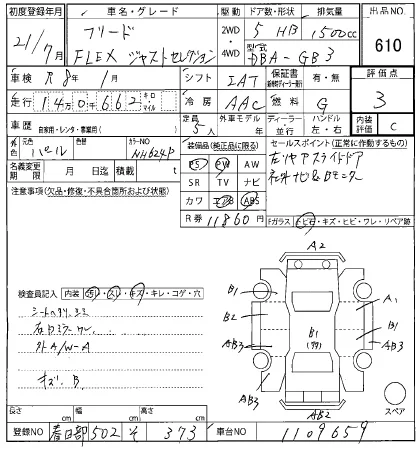 初度登録年月 車名・グレード 駆動 ドア数・形状 排気量 出品NO
21/7月 フリード 2WD 5 HB 1500cc 610
FLEX ジャストセレクション ・4WD 型式 DBA-GB3
車検 R8年/1月 シフト IAT 保証書 有・無 評価点
走行 140,662 キロ・マイル 冷房 AAC 燃料 G 3
車歴 自家用・レンタ・事業用( ) 定員 5人 外車モデル 年 ディーラー・並行 ハンドル 左・右 内装評価 C
外色 元色 パール 色替 カラーNO NH624P 装備品(純正品に限る) セールスポイント(正常に作動するもの)
名義変更期限 月 日迄 積載量 t PS PW AW 左リヤスライドドア
注意事項(欠品・修復・不具合箇所および状態) SR TV ナビ 社外ナビ&Bモニター
カワ エアB ABS
R券 11860円 Fガラス トビ石・キズ・ヒビ・ワレ・リペア跡
A2
検査員記入 内装 ヨゴレ・スレ・キズ・キレ・コゲ・穴
B1 A1
シートヘタリ、スミ B2 B1
AB3 B1 AB3
外A/W-A
キズ、B AB3 AB3
スペア
AB2
長さ cm 幅 cm 高さ cm
登録NO 春日部 502 そ 373 車台NO 1109659